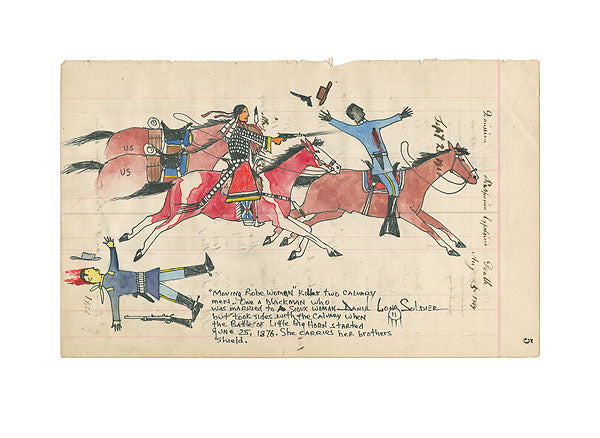 US
US
Sept 2
"Moving Robe Woman" kills two calvary
men.. One a blackman who
was married to a Sioux woman
but took sides with the calvary when
the Battle of Little Big Horn started
June 25, 1876. She carries her brothers
shield.
Daniel Long Soldier
11
Death
5